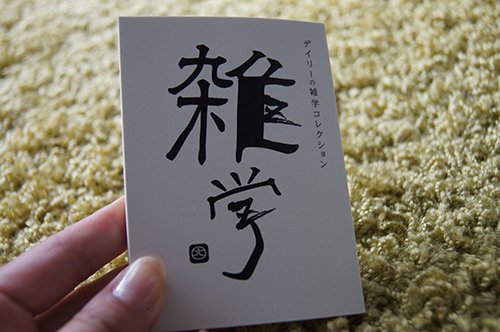 デイリーの雑学コレクション
雑学